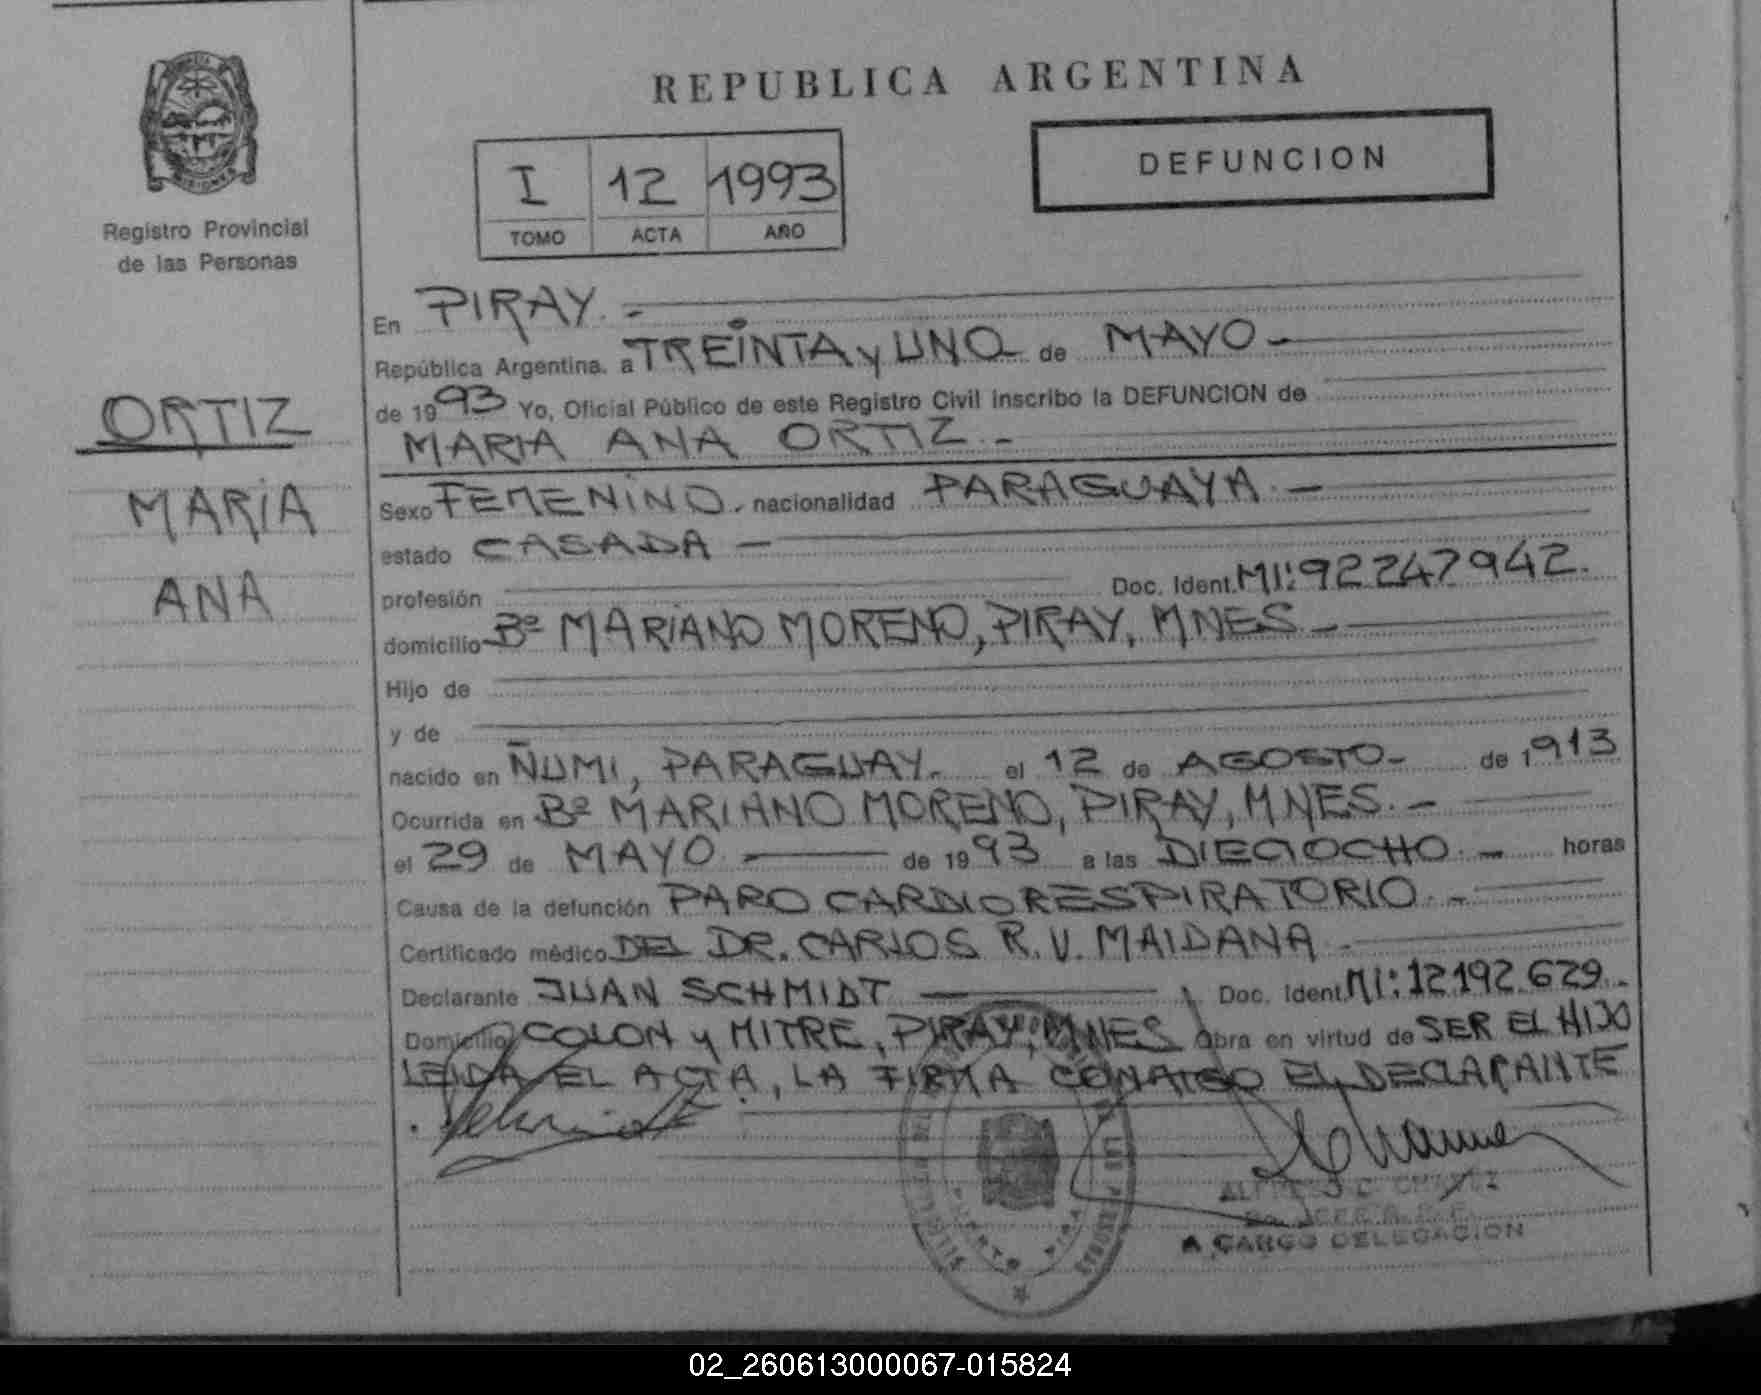 REPUBLICA ARGENTINA
DEFUNCION
I 12 1993
TOMO ACTA AÑO
MISIONES
Registro Provincial
de las Personas
ORTIZ
MARIA
ANA
En PIRAY.-
República Argentina, a TREINTA y UNO de MAYO-
de 1993 Yo, Oficial Público de este Registro Civil inscribo la DEFUNCION de
MARIA ANA ORTIZ.-
Sexo FEMENINO. nacionalidad PARAGUAYA.-
estado CASADA-
profesión Doc. Ident. MI:92247942.
domicilio Bº MARIANO MORENO, PIRAY, MNES.-
Hijo de
y de
nacido en ÑUMI, PARAGUAY. el 12 de AGOSTO- de 1913
Ocurrida en Bº MARIANO MORENO, PIRAY, MNES.-
el 29 de MAYO.- de 1993 a las DIECIOCHO.- horas
Causa de la defunción PARO CARDIORESPIRATORIO.-
Certificado médico DEL DR. CARLOS R.V. MAIDANA.-
Declarante JUAN SCHMIDT - Doc. Ident. MI:12192.629.-
Domicilio COLON y MITRE, PIRAY, MNES Obra en virtud de SER EL HIJO
LEIDA EL ACTA, LA FIRMA CONMIGO EL DECLARANTE
A CARGO DELEGACION
02_260613000067-015824